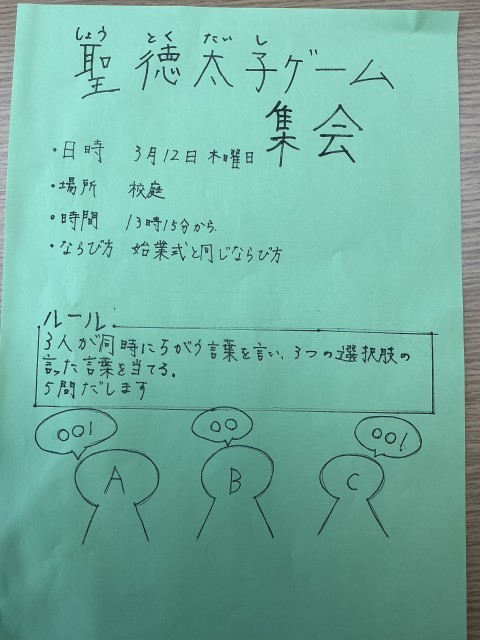 しょう とく たい し
聖徳太子ゲーム
集会
・日時 3月12日木曜日
・場所 校庭
・時間 13時15分から
・ならび方 始業式と同じならび方
ルール
3人が同時にちがう言葉を言い、3つの選択肢の
言った言葉を当てる。
5問だします
〇〇!
〇〇
〇〇!
A
B
C